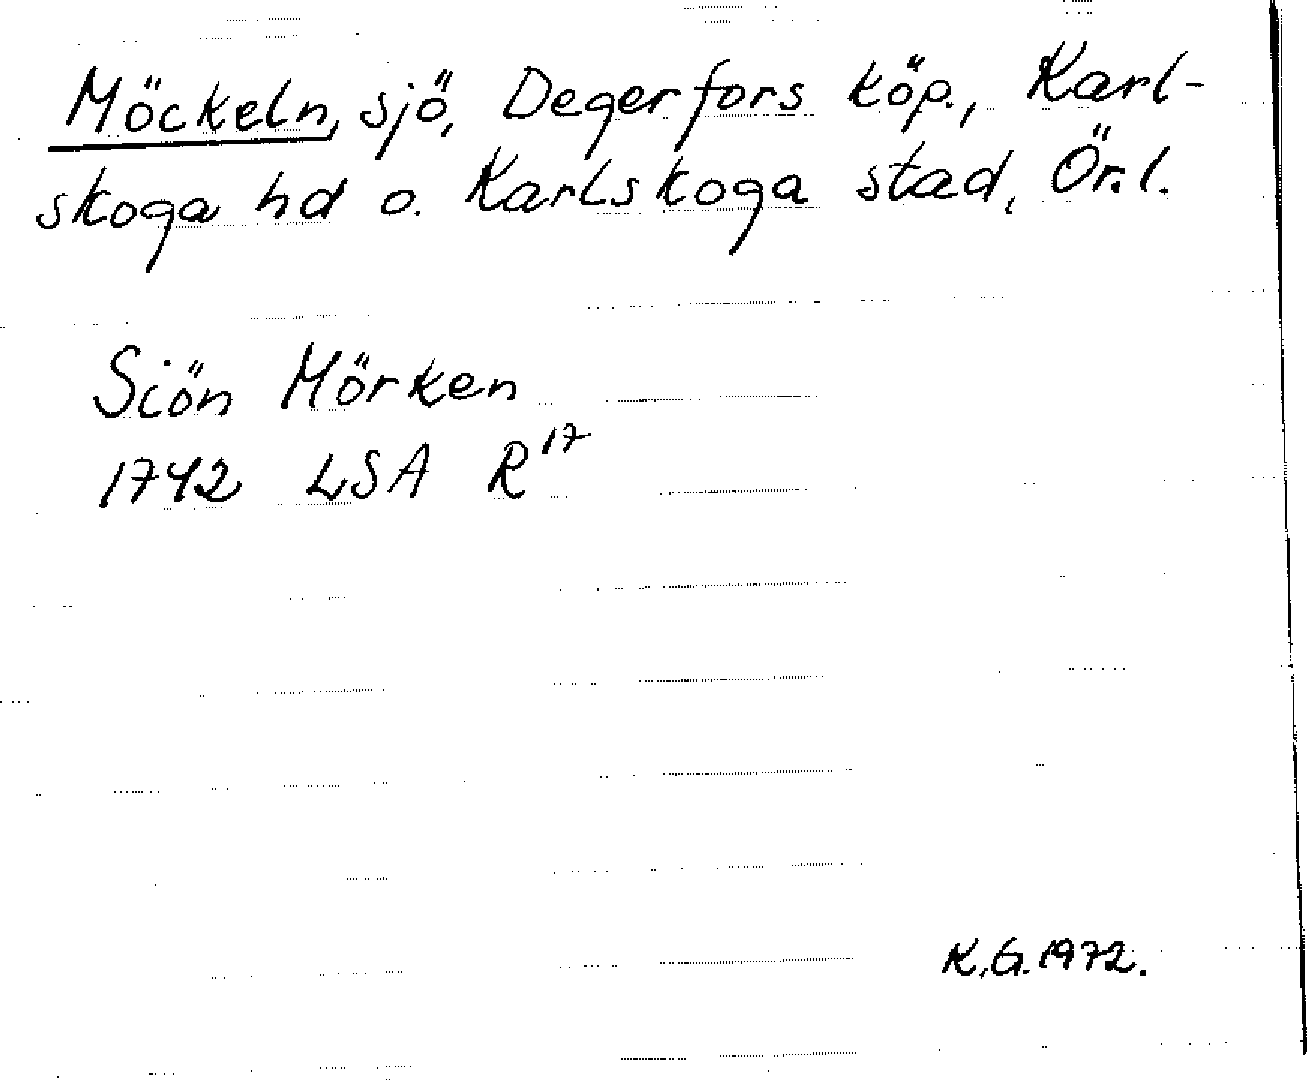 Möckeln, sjö, Degerfors köp., Karl-
skoga hd o. Karlskoga stad, Ör.l.
Siön Mörken
1742 LSA R17
K.G. 1972.